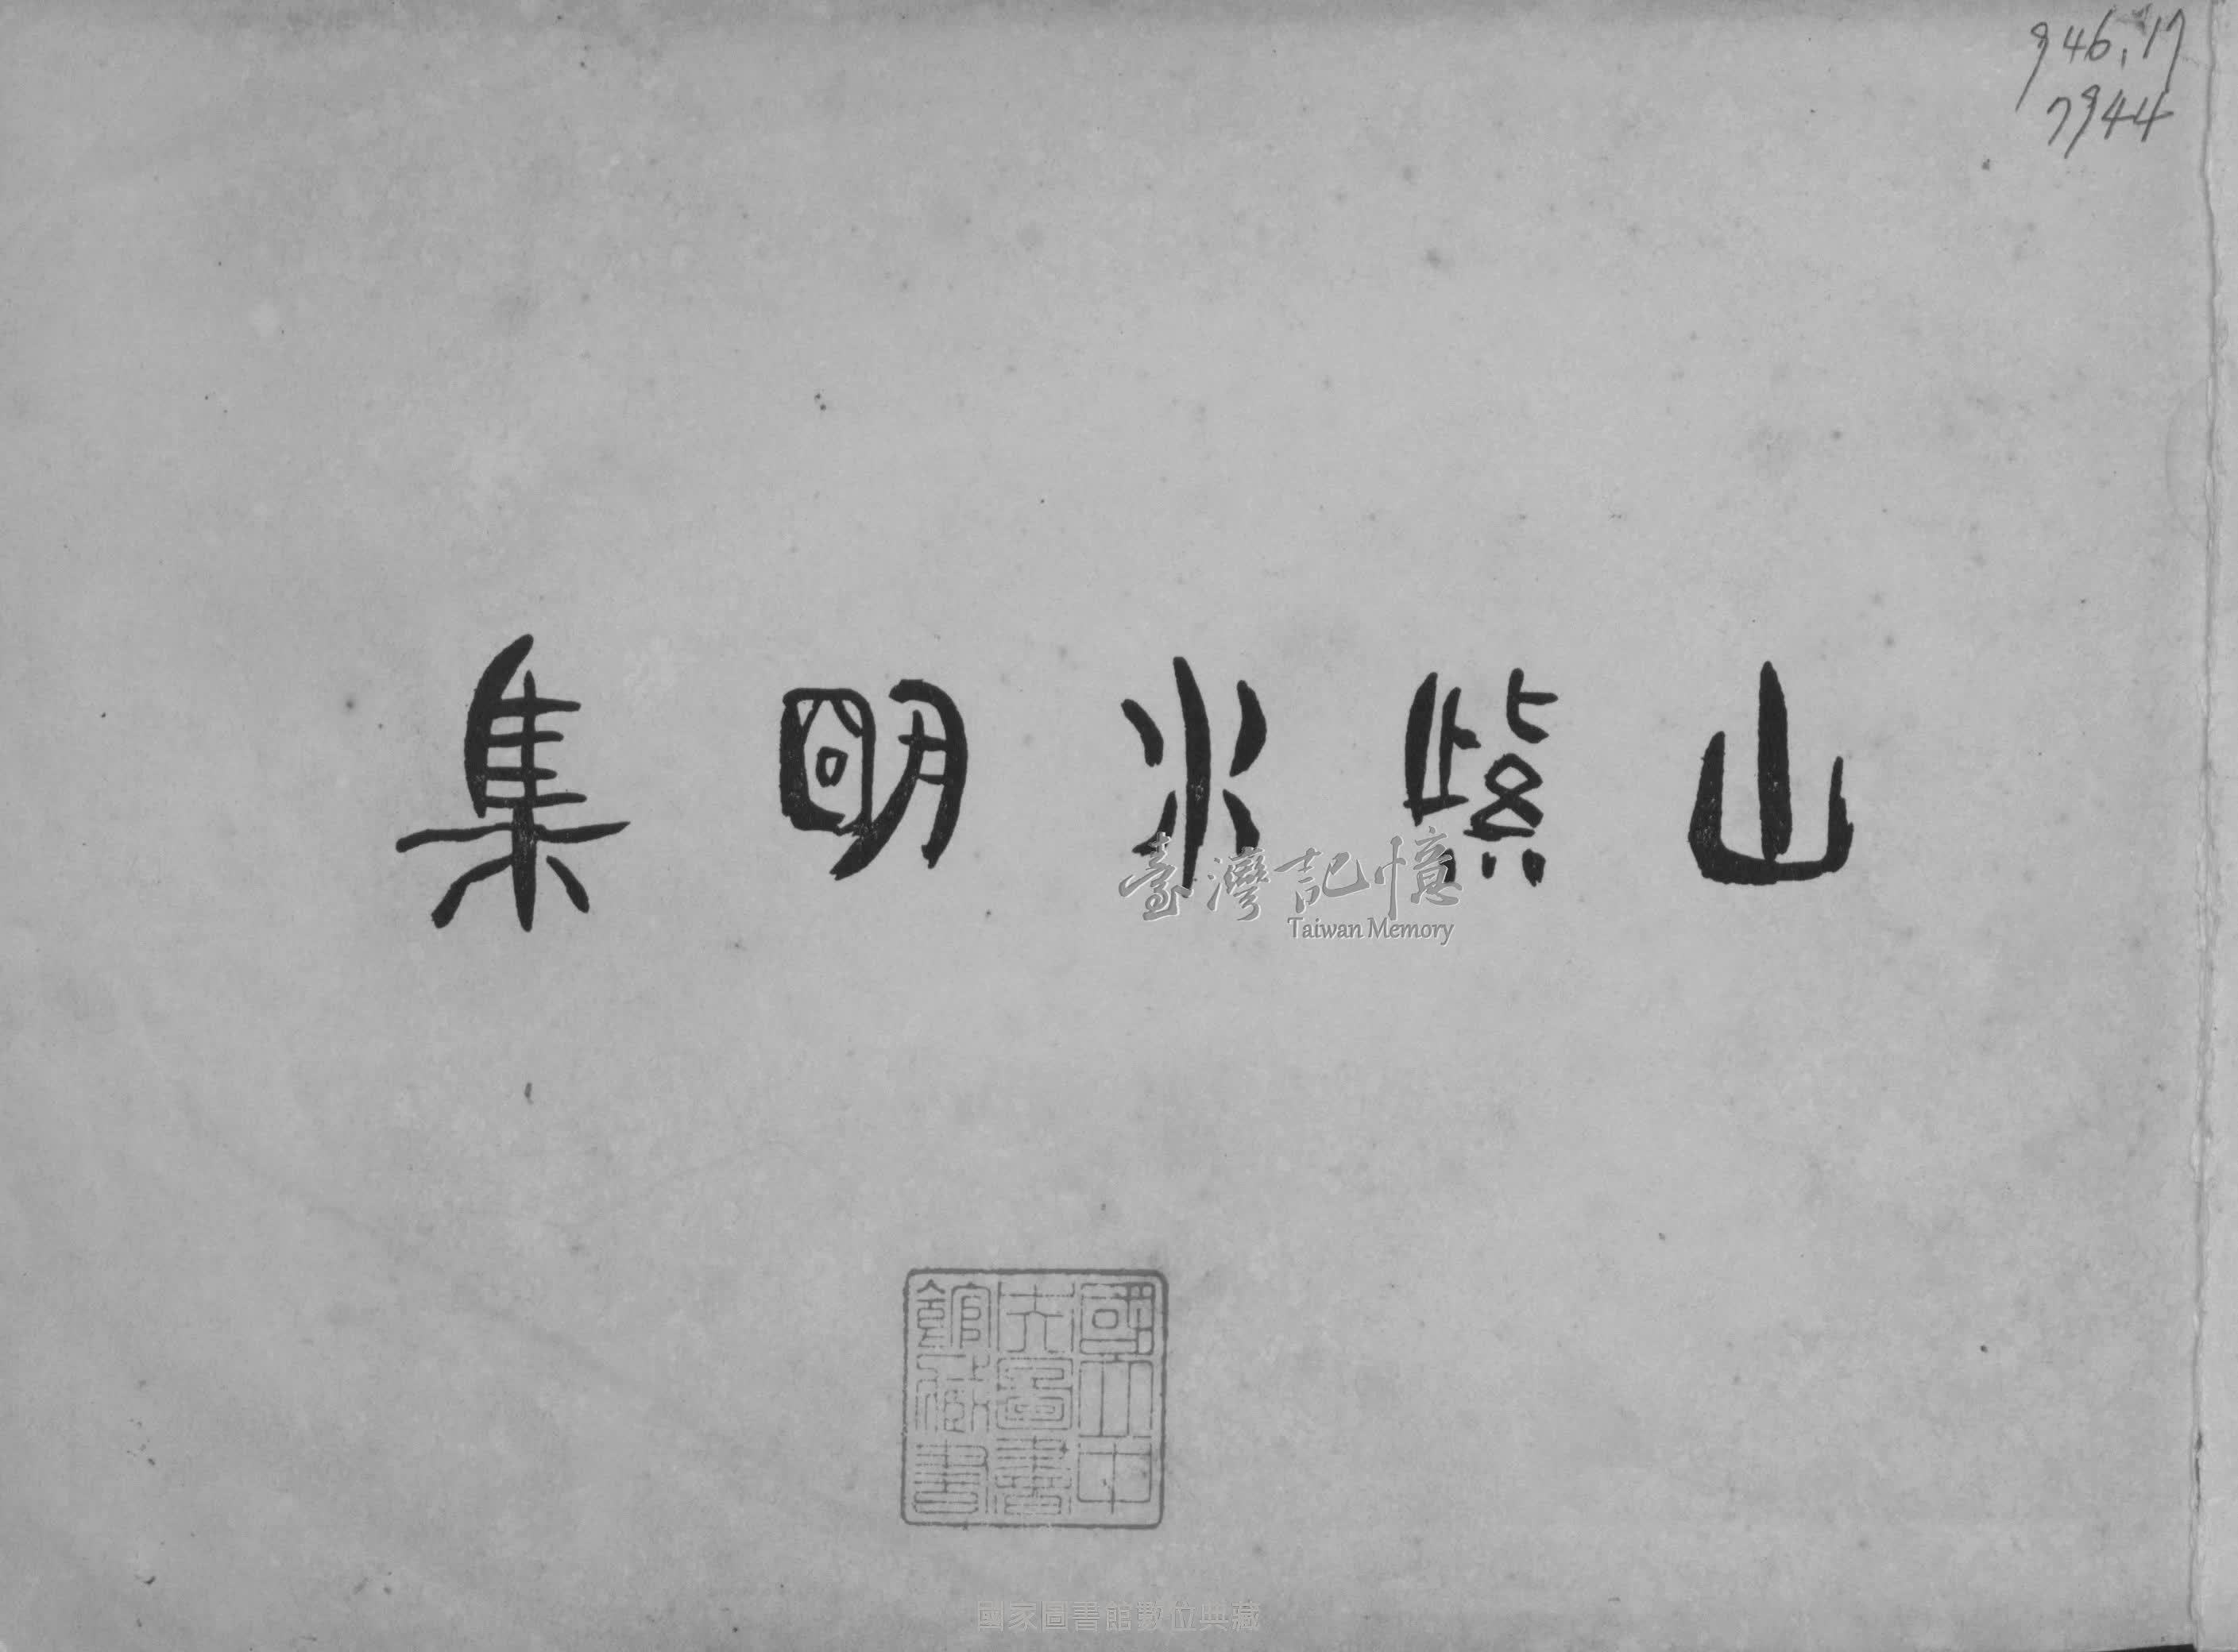 946.17
7944
山紫水明集
臺灣記憶
Taiwan Memory
國立中
央圖書
館藏書
國家圖書館數位典藏